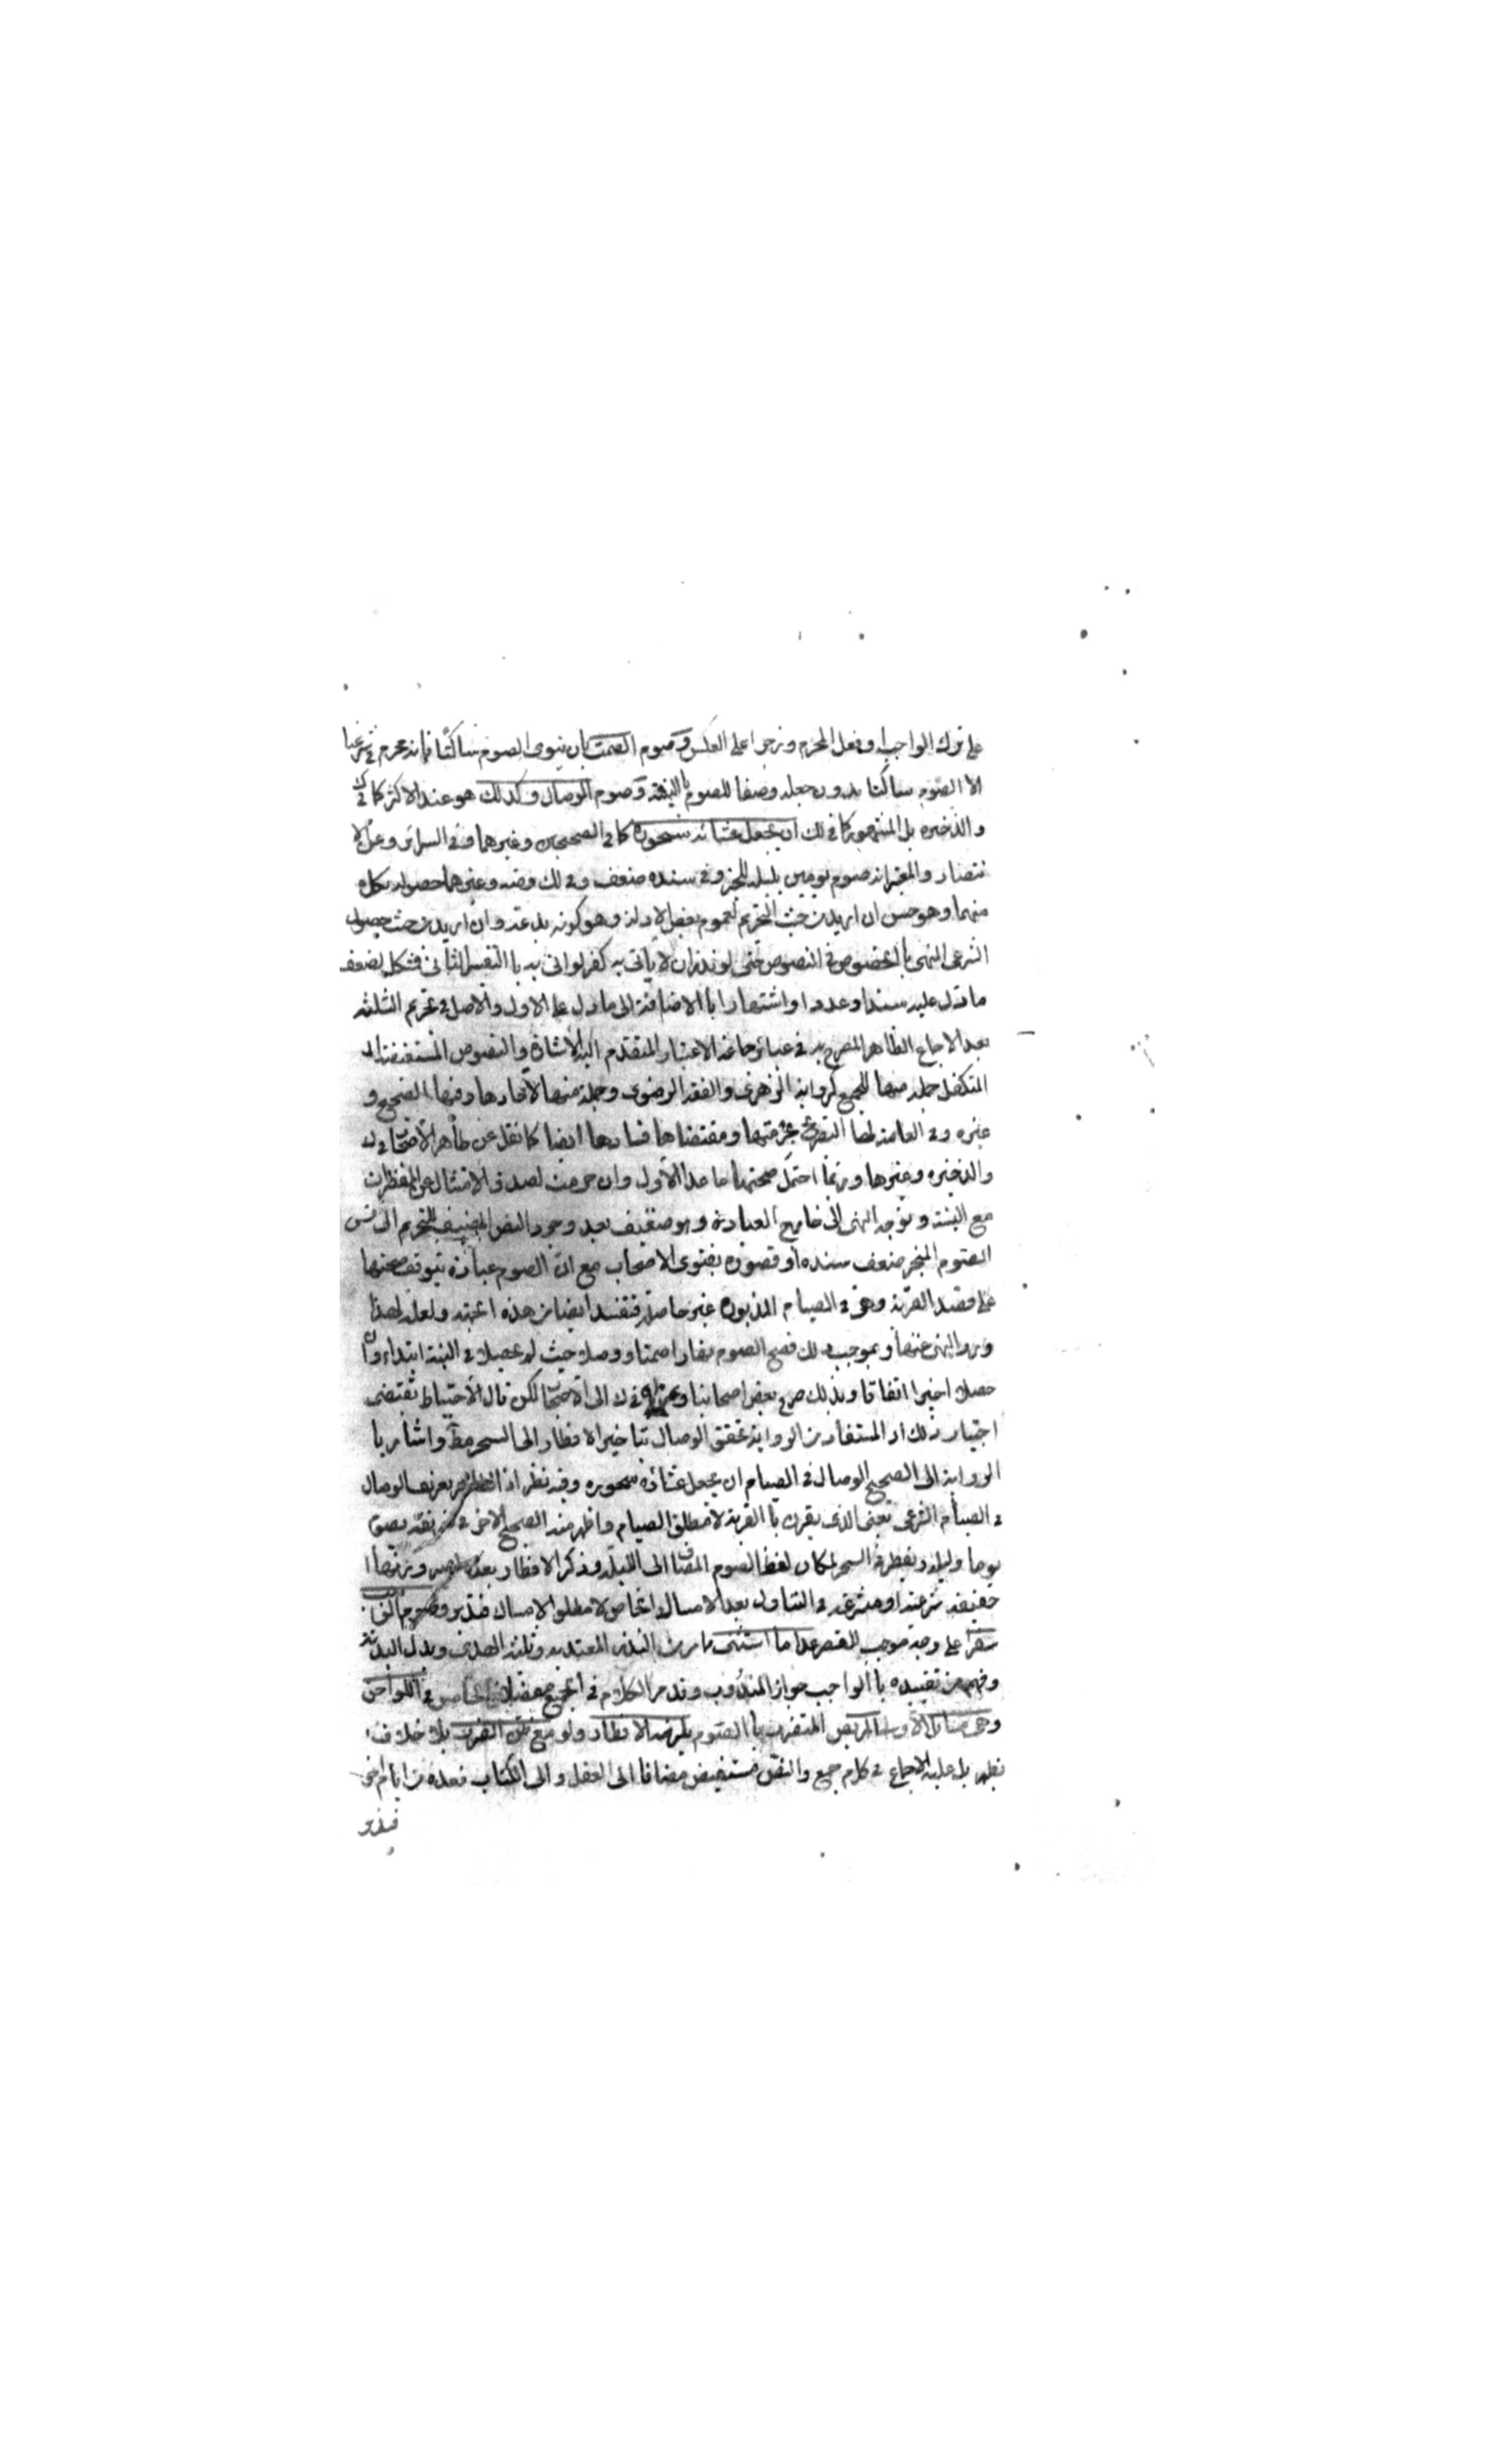 على ترك الواجب او فعل المحرم وزجرا على العكس وصوم الصمت بان ينوى الصوم ساكتا فانه محرم في شرعنا
الا الصوم ساكتا بدون جعله وصفا للصوم بالنية وصوم الوصال وكذلك هو عند الاكثر كما في ك
والذخيرة بل المشهور كما في لك ان يجعل عشائه سحوره كما في الصحيحين وغيرهما وفي السرائر وعن الا
نتصار والمعتبر انه صوم يومين بليلة للخبر وفي سنده ضعف وفي لك وضه وغيرهما حصوله بكل
منهما وهو حسن ان اريد من حيث التحريم لعموم بعض الادلة وهو كونه بدعة وان اريد من حيث حصول
الشرعى النهى بالخصوص في النصوص حتى لو نذر ان لا ياتى به كفر لو اتى به بالتفسير الثانى فمشكل لضعف
ما دل عليه سندا وعددا واشتهارا بالاضافة الى ما دل على الاول والاصل في تحريم الثلثة
بعد الاجماع الظاهر المصرح به في عبائر جماعة الاعتبار المتقدم اليه الاشارة والنصوص المستفيضة
المتكفل جملة منها للجميع كرواية الزهرى والفقه الرضوى وجملة منها لآحادها وفيها الصحيح و
غيره وفي العامة لها التصريح بحرمتها ومقتضاها فسادها ايضا كما نقل عن ظاهر الاصحاب في ك
والذخيره وغيرها وربما احتمل صحتها ما عدا الاول وان حرمت لصدق الامتثال عن المفطرات
مع النية وتوجه النهى الى خارج العبادة وهو ضعيف بعد وجود النص المضيف للتحريم الى نفس
الصوم المنجبر ضعف سنده او قصوره بفتوى الاصحاب مع ان الصوم عبادة يتوقف صحتها
على قصد القربة وهو في الصيام المذبورة غير حاصلة فتفسد ايضا من هذه الجهة ولعله لهذا
ورد النهى عنها وبموجب ذلك فصح الصوم نهارا صمتا ووصلا حيث لم يحصلا في النية ابتداء وان
حصلا اخيرا اتفاقا وبذلك صرح بعض اصحابنا وعزاه في ك الى الاصحاب لكن قال الاحتياط يقتضى
اجتناب ذلك اذ المستفاد من الرواية تحقق الوصال بتاخير الافطار الى السحر مطلقا واشار با
الرواية الى الصحيح الوصال في الصيام ان يجعل عشاؤه سحوره وفيه نظر اذ الظاهر تعريف الوصال
في الصيام الشرعى يعنى الذى يقرن بالقربة لا مطلق الصيام واظهر منه الصحيح الاخر في تعريفه يصوم
يوما وليلة ويفطر في السحر لمكان لفظ الصوم المضاف الى الليلة وذكر الافطار بعده
حقيقة شرعية او متشرعة في التناول بعد الامساك الخاص لا مطلق الامساك فتدبر وصوم الواجب
سفرا على وجه موجب للقصر عدا ما استثنى مما مر من النذر المقيد به وثلثة الهدى وبدل البدنة
وفهم من تقييده بالواجب جواز المندوب وقدم الكلام في الجميع مفصلا الخامس في اللواحق
وهى مسائل الاولى المريض المتضرر بالصوم يلزمه الافطار ولو مع ظن الضرر بلا خلاف
نظهر بل عليه الاجماع في كلام جمع والنص مستفيض مضافا الى العقل والى الكتاب فعدة من ايام اخر
فتدبر